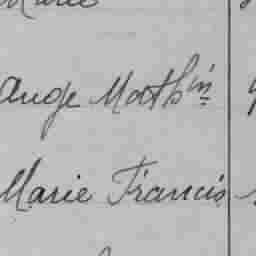 Marie
Ange Math in
Marie Francis